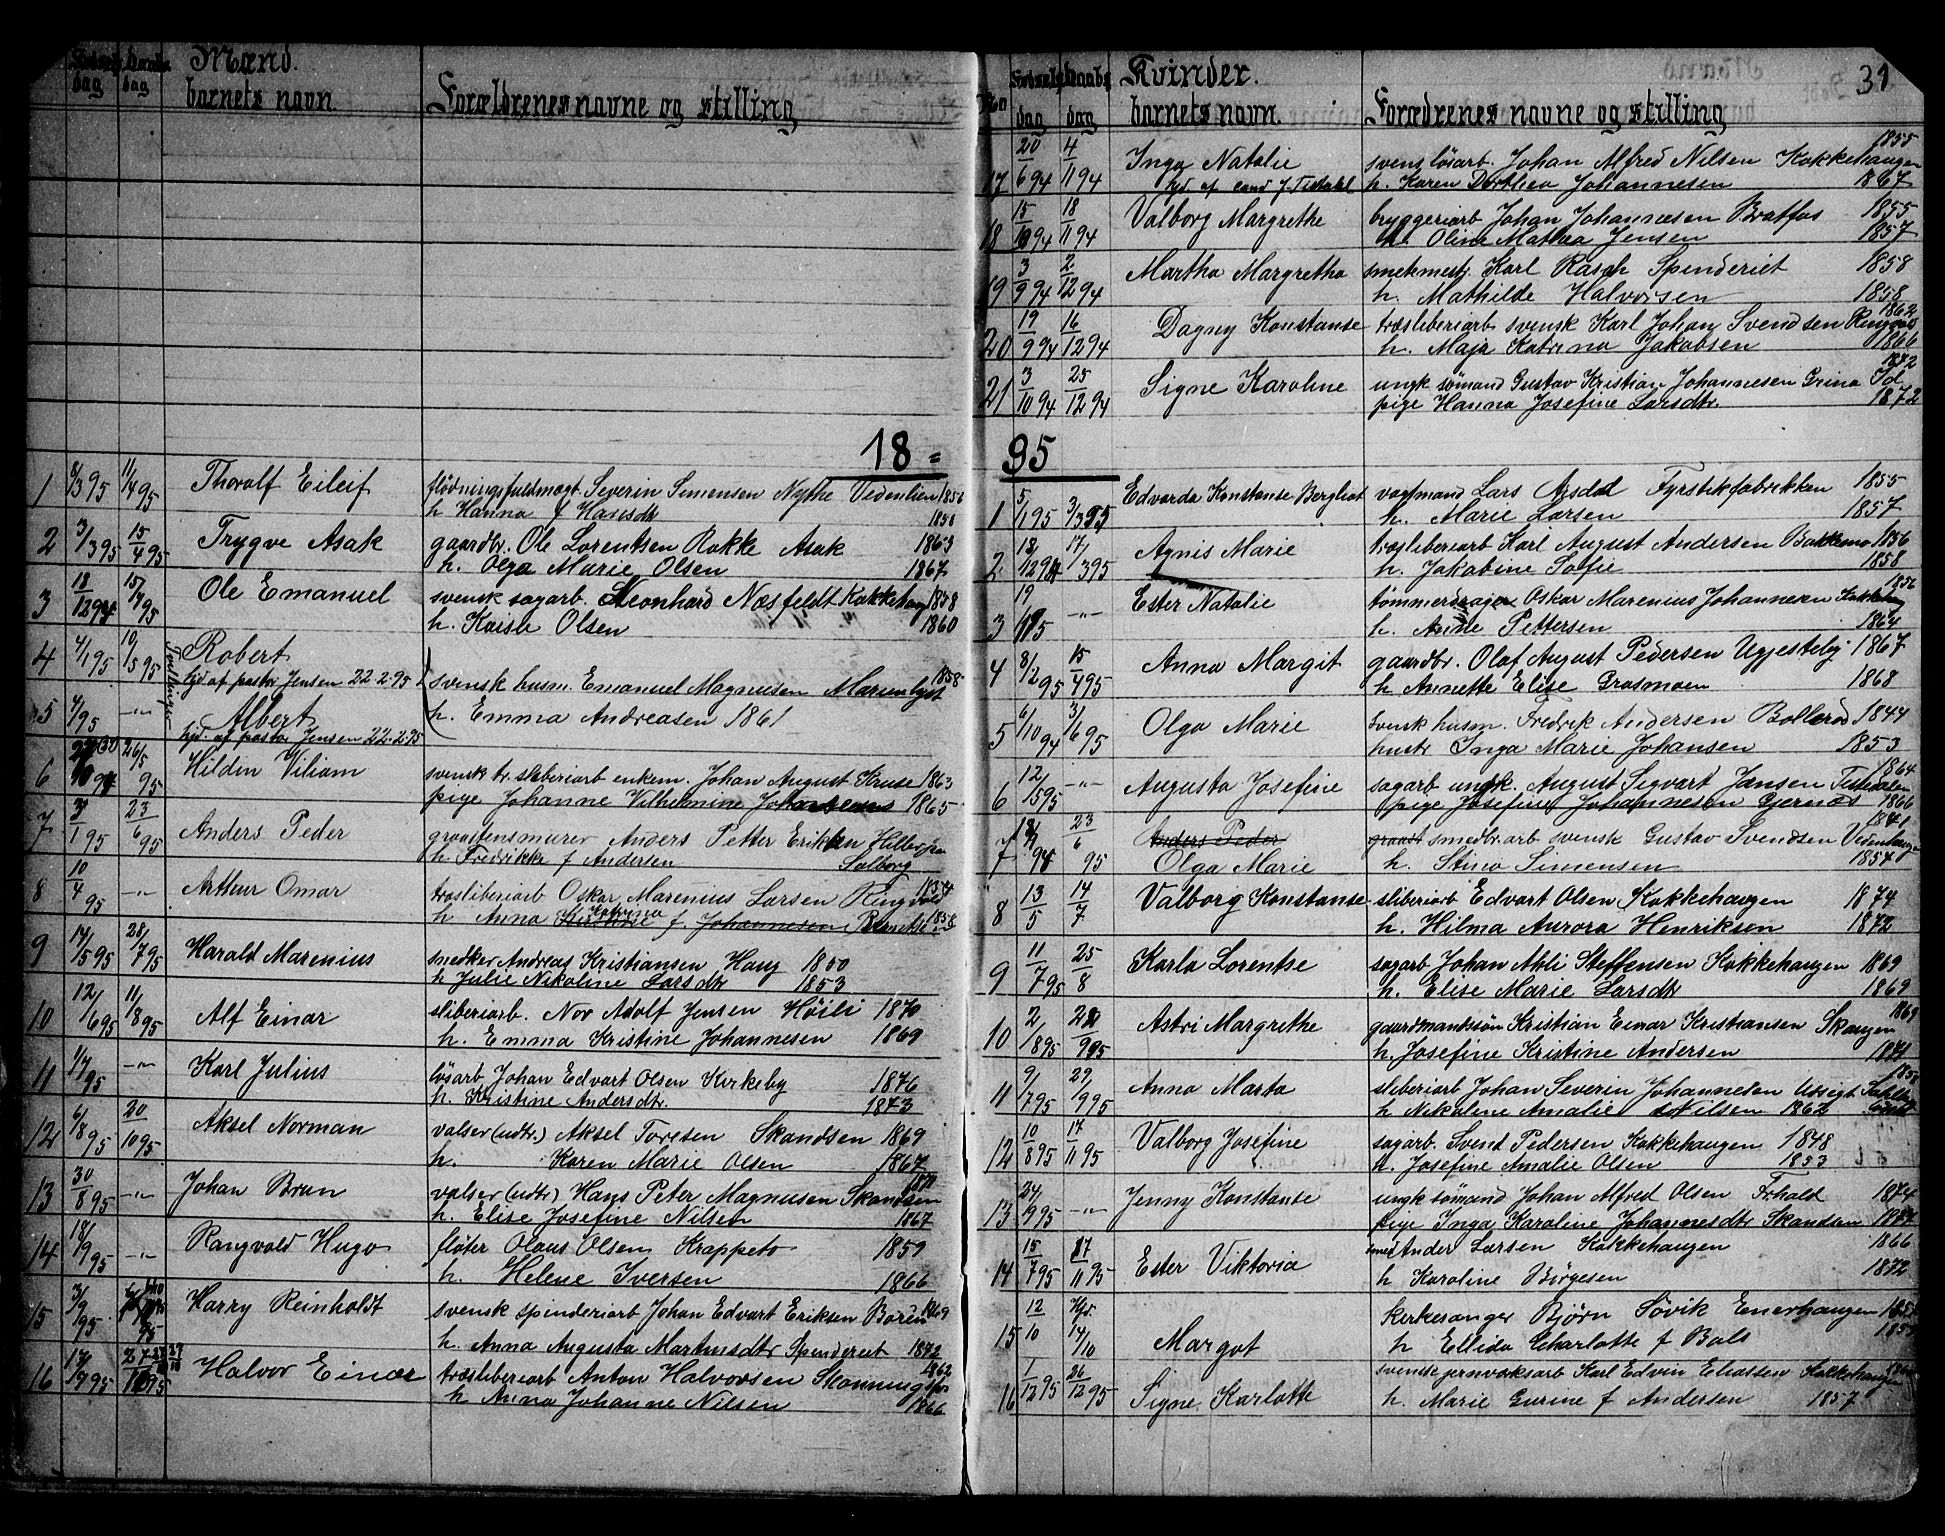 Mænd.
Fødsels dag
Daabs dag
barnets navn.
Forældrenes navne og stilling
18 =
1 8/3 95 11/4 95 Thoralf Eileif
flødningsfuldmægt. Severin Simensen Nythe Vedenlien 1856
h Hanna f Hansdtr 1850
2 3/3 95 15/4 95 Trygve Asak
gaardbr. Ole Lorentsen Rokke Asak 1863
h. Olga Marie Olsen 1867
3 18/12 94 15/4 95 Ole Emanuel
svensk sagarb. Leonhard Næsfeldt Kokkehaug 1858
h. Kaisa Olsen 1860
4 4/1 95 10/5 95 Robert
hjd af pastor Jensen 22-2-95
Tvillinger
svensk husm. Emanuel Magnusen Marienlyst 1858
h. Emma Andreasen 1861
5 4/1 95 -"- Albert
hjd. af pastor Jensen 22-2-95
6 10 94 26/5 95 Hilden Viliam
svensk tr. sliberiarb enkem. Johan August Kruse 1863
pige Johanne Vilhelmine 1865
7 3/1 95 23/6 95 Anders Peder
graastensmurer Anders Petter Eriksen
h Fredrikke f Andersen Solborg
8 10/4 95 -"- Arthur Omar
træsliberiarb Oskar Marenius Larsen Ringvold
h Anna Katrina f. Johannesen
9 14/5 95 28/7 95 Harald Marenius
snedker Andreas Kristiansen Haug 1850
h Julie Nikoline Larsdtr 1853
10 12/6 95 11/8 95 Alf Einar
sliberiarb. Nor Adolf Jensen Høili 1870
h. Emma Kristine Johannesen 1869
11 1/7 95 -"- Karl Julius
løsarb Johan Edvart Olsen Kirkeby 1876
h. Kristine Andersdtr. 1873
12 6/8 95 20/10 95 Aksel Norman
valser (udtr.) Aksel Toresen Skandsen 1869
h. Karen Marie Olsen 1867
13 30/8 95 -"- Johan Brun
valser (udtr) Hans Peter Magnusen Skandsen
h. Elise Josefine Nilsen 1867
14 18/9 95 -"- Rangvald Hugo
fløter Olaus Olsen Krappeto 1859
h. Helene Iversen 1866
15 3/9 95 Harry Reinholdt
svensk spinderiarb Johan Edvart Eriksen 1869
h. Anna Augusta Martinusdtr Spinderiet 1872
16 17/9 95 Halvor Einar
træsliberiarb Anton Halvorsen 1862
h Anna Johanne Nilsen 1866
Kvinder.
31
No
Fødsels dag
Daabs dag
barnets navn.
Forædrenes navne og stilling
17 20/6 94 4/11 94 Inga Natalie
hjd af cand J. Tistahl
svensk løsarb. Johan Alfred Nilsen Kokkehaugen 1855
h. Karen Dorthea Johannesen 1867
18 15/10 94 18/11 94 Valborg Margrethe
bryggeriarb Johan Johannesen Bratfos 1855
h. Oline Mathea Jensen 1857
19 3/9 94 2/12 94 Martha Margretha
smekmestr. Karl Rasch Spinderiet 1858
h. Mathilde Halvorsen 1858
20 19/9 94 16/12 94 Dagny Konstanse
træsliberiarb svensk Karl Johan Svendsen Ringvold 1862
h. Maja Katrina Jakobsen 1866
21 3/10 94 25/12 94 Signe Karoline
ungk sømand Gustav Kristian Johannesen Grina Id 1872
pige Hanna Josefine Larsdtr. 1872
95
1 5/1 95 3/3 95 Edvarda Konstanse Bergliot
vagtmand Lars Asdal Fyrstikfabrikken 1855
h. Marie Larsen 1857
2 18/12 94 17/3 95 Agnis Marie
træsliberiarb Karl August Andersen Bakkemo 1856
h. Jakobine Sofie 1858
3 19/1 95 -"- Ester Natalie
tømmer Oskar Marenius Johannesen
h. Anne Pettersen 1864
4 8/2 95 15/4 95 Anna Margit
gaardbr. Olaf August Pedersen Ugjesteby 1867
h Annette Elise Grasmoen 1868
5 6/10 94 3/6 95 Olga Marie
svensk husm. Fredrik Andersen Bollerød 1844
hustr Inga Marie Johansen 1853
6 12/1 95 -"- Augusta Josefine
sagarb ungk. August Sigvart Jansen Tistedalen 1864
pige Josefine Johannesen Gjernæs 1866
7 94 23/6 95 Anders Peder
Olga Marie
graast smedbr.arb svensk Gustav Svendsen Vedenhaugen 1841
h. Stina Simensen 1854
8 13/5 14/7 Valborg Konstanse
sliberiarb Edvart Olsen Kokkehaugen 1874
h. Hilma Aurora Henriksen 1872
9 11/7 95 25/8 Karla Lorentse
sagarb Johan Akli Steffensen Kokkehaugen 1869
h. Elise Marie Larsdtr 1869
10 2/8 95 9 95 Astri Margrethe
gaardmandssøn Kristian Einar Kristiansen Skaugen 1869
h. Josefine Kristine Andersen 1871
11 9/7 95 29/9 95 Anna Marta
sliberiarb Johan Severin Johannesen
h Nikoline Amalie Nilsen 1862
12 10/8 95 17/11 95 Valborg Josefine
sagarb. Svend Pedersen Kokkehaugen 1848
h. Josefine Amalie Olsen 1853
13 24/9 95 -"- Jenny Konstanse
ungk sømand Johan Alfred Olsen 1874
pige Inga Karoline Johannesdtr Skandsen
14 15/7 95 17/11 95 Ester Viktoria
smed Ander Larsen Kokkehaugen 1866
h Karoline Børgesen 1872
15 12/10 Hjd. 14/10 Margot
kirkesanger Bjørn Søvik Enerhaugen
h Ellida Charlotte f Bals
16 1/12 95 26/12 95 Signe Karlotte
svensk jernværksarb Karl Edvin Eliassen Kokkehaugen
h. Marie Gurine f Andersen 1857